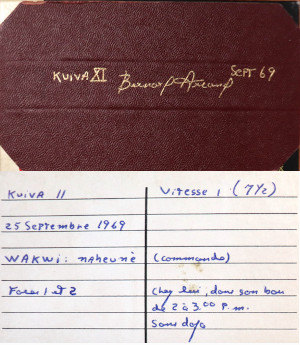 KUIVA XI Bernard Arcand SEPT 69
KUIVA 11
Vitesse 1 (7 ½)
25 Septembre 1969
WAKWI: naheunè (commando)
Faces 1 et 2
Chez lui, dans son
de 2 à 3.00 P.M.
Sans